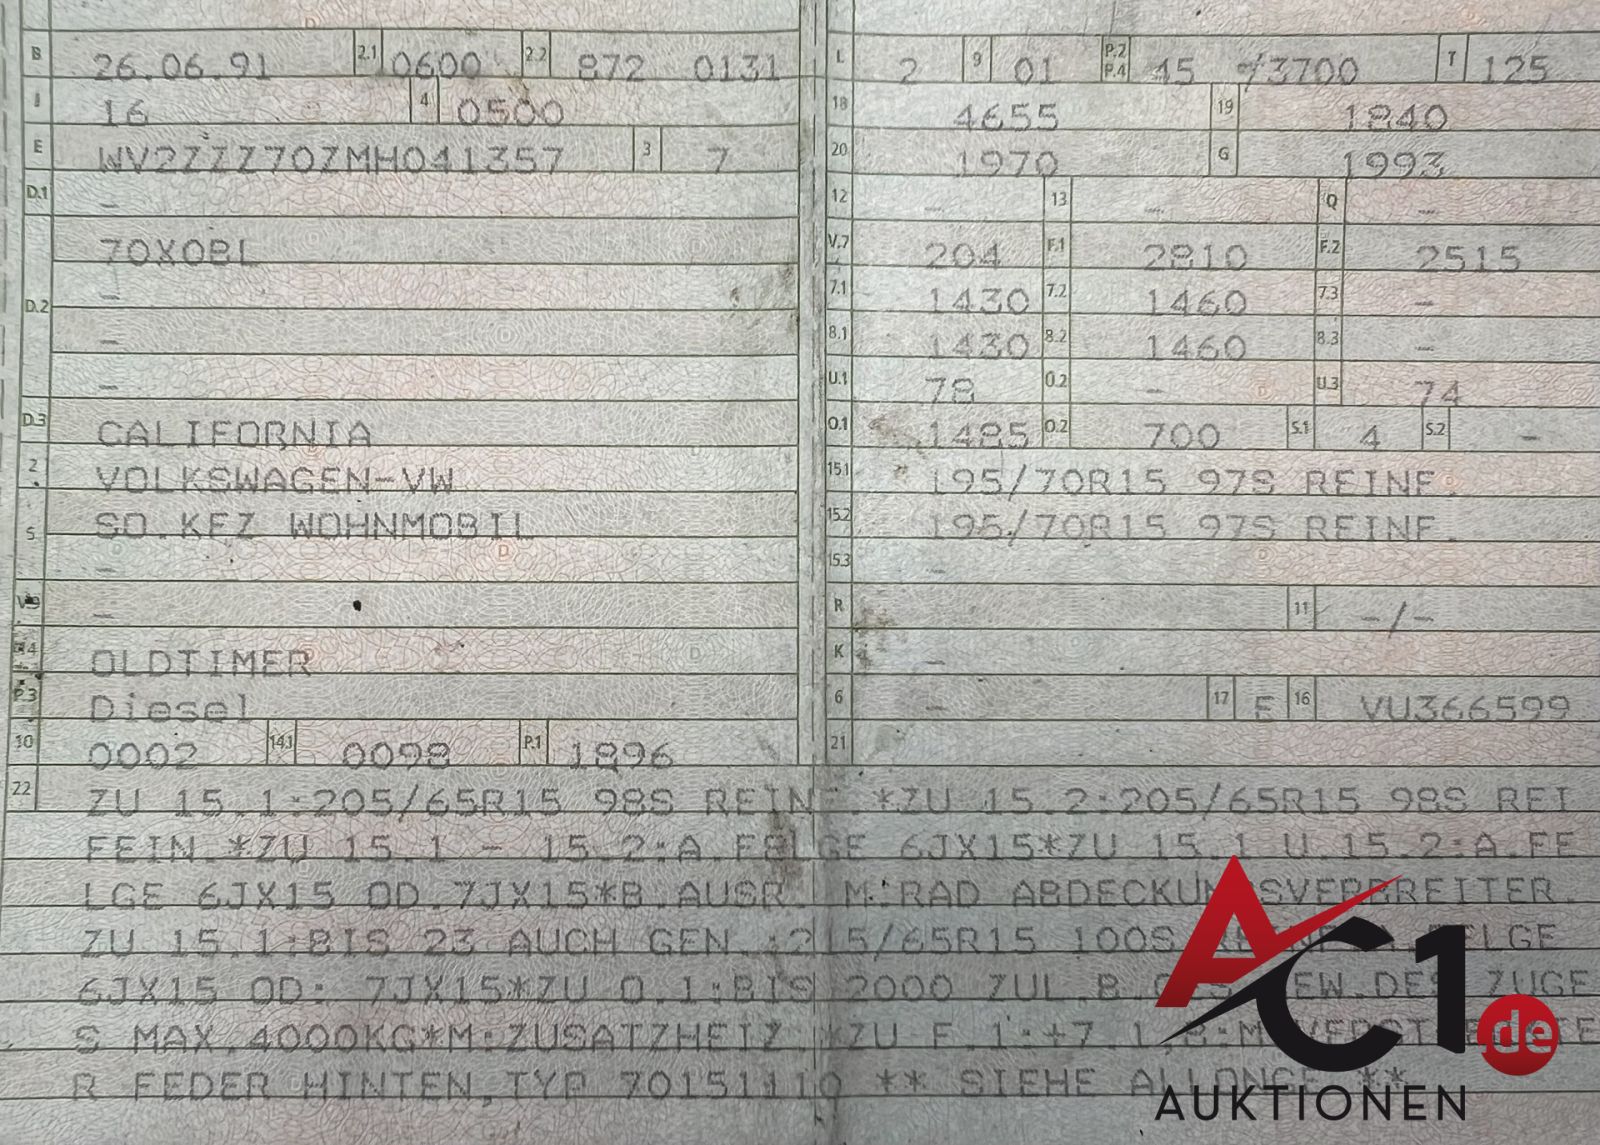 B 26.06.91 2.1 0600 2.2 872 0131
J 16 4 0500
E WV2ZZZ70ZMH041357 3 7
D.1 -
70X0BL
D.2 -
-
-
D.3 CALIFORNIA
2 VOLKSWAGEN-VW
5 SO.KFZ WOHNMOBIL
-
V.9 -
14 OLDTIMER
P.3 Diesel
10 0002 14.1 0098 P.1 1896
L 2 9 01 P.2 P.4 45 /3700 T 125
18 4655 19 1840
20 1970 G 1993
12 - 13 - Q -
V.7 204 F.1 2810 F.2 2515
7.1 1430 7.2 1460 7.3 -
8.1 1430 8.2 1460 8.3 -
U.1 78 O.2 - U.3 74
O.1 1485 O.2 700 S.1 4 S.2 -
15.1 195/70R15 97S REINF.
15.2 195/70R15 97S REINF.
15.3 -
R 11 -/-
K -
6 - 17 E 16 VU366599
21
22 ZU 15.1:205/65R15 98S REINF.*ZU 15.2:205/65R15 98S REI
FEIN.*ZU 15.1 - 15.2:A.FELGE 6JX15*ZU 15.1 U.15.2:A.FE
LGE 6JX15 OD.7JX15*B.AUSR. M.RAD ABDECKUNGSVERBREITER.
ZU 15.1:BIS 23 AUCH GEN.:215/65R15 100S FELGE
6JX15 OD: 7JX15*ZU O.1:BIS 2000 ZUL.B. GEW.DES ZUGE
S MAX.4000KG*M:ZUSATZHEIZ.*ZU F.1:+7.1,B:M.
R FEDER HINTEN,TYP 70151110 ** SIEHE ALLONGE **
AC1.de
AUKTIONEN